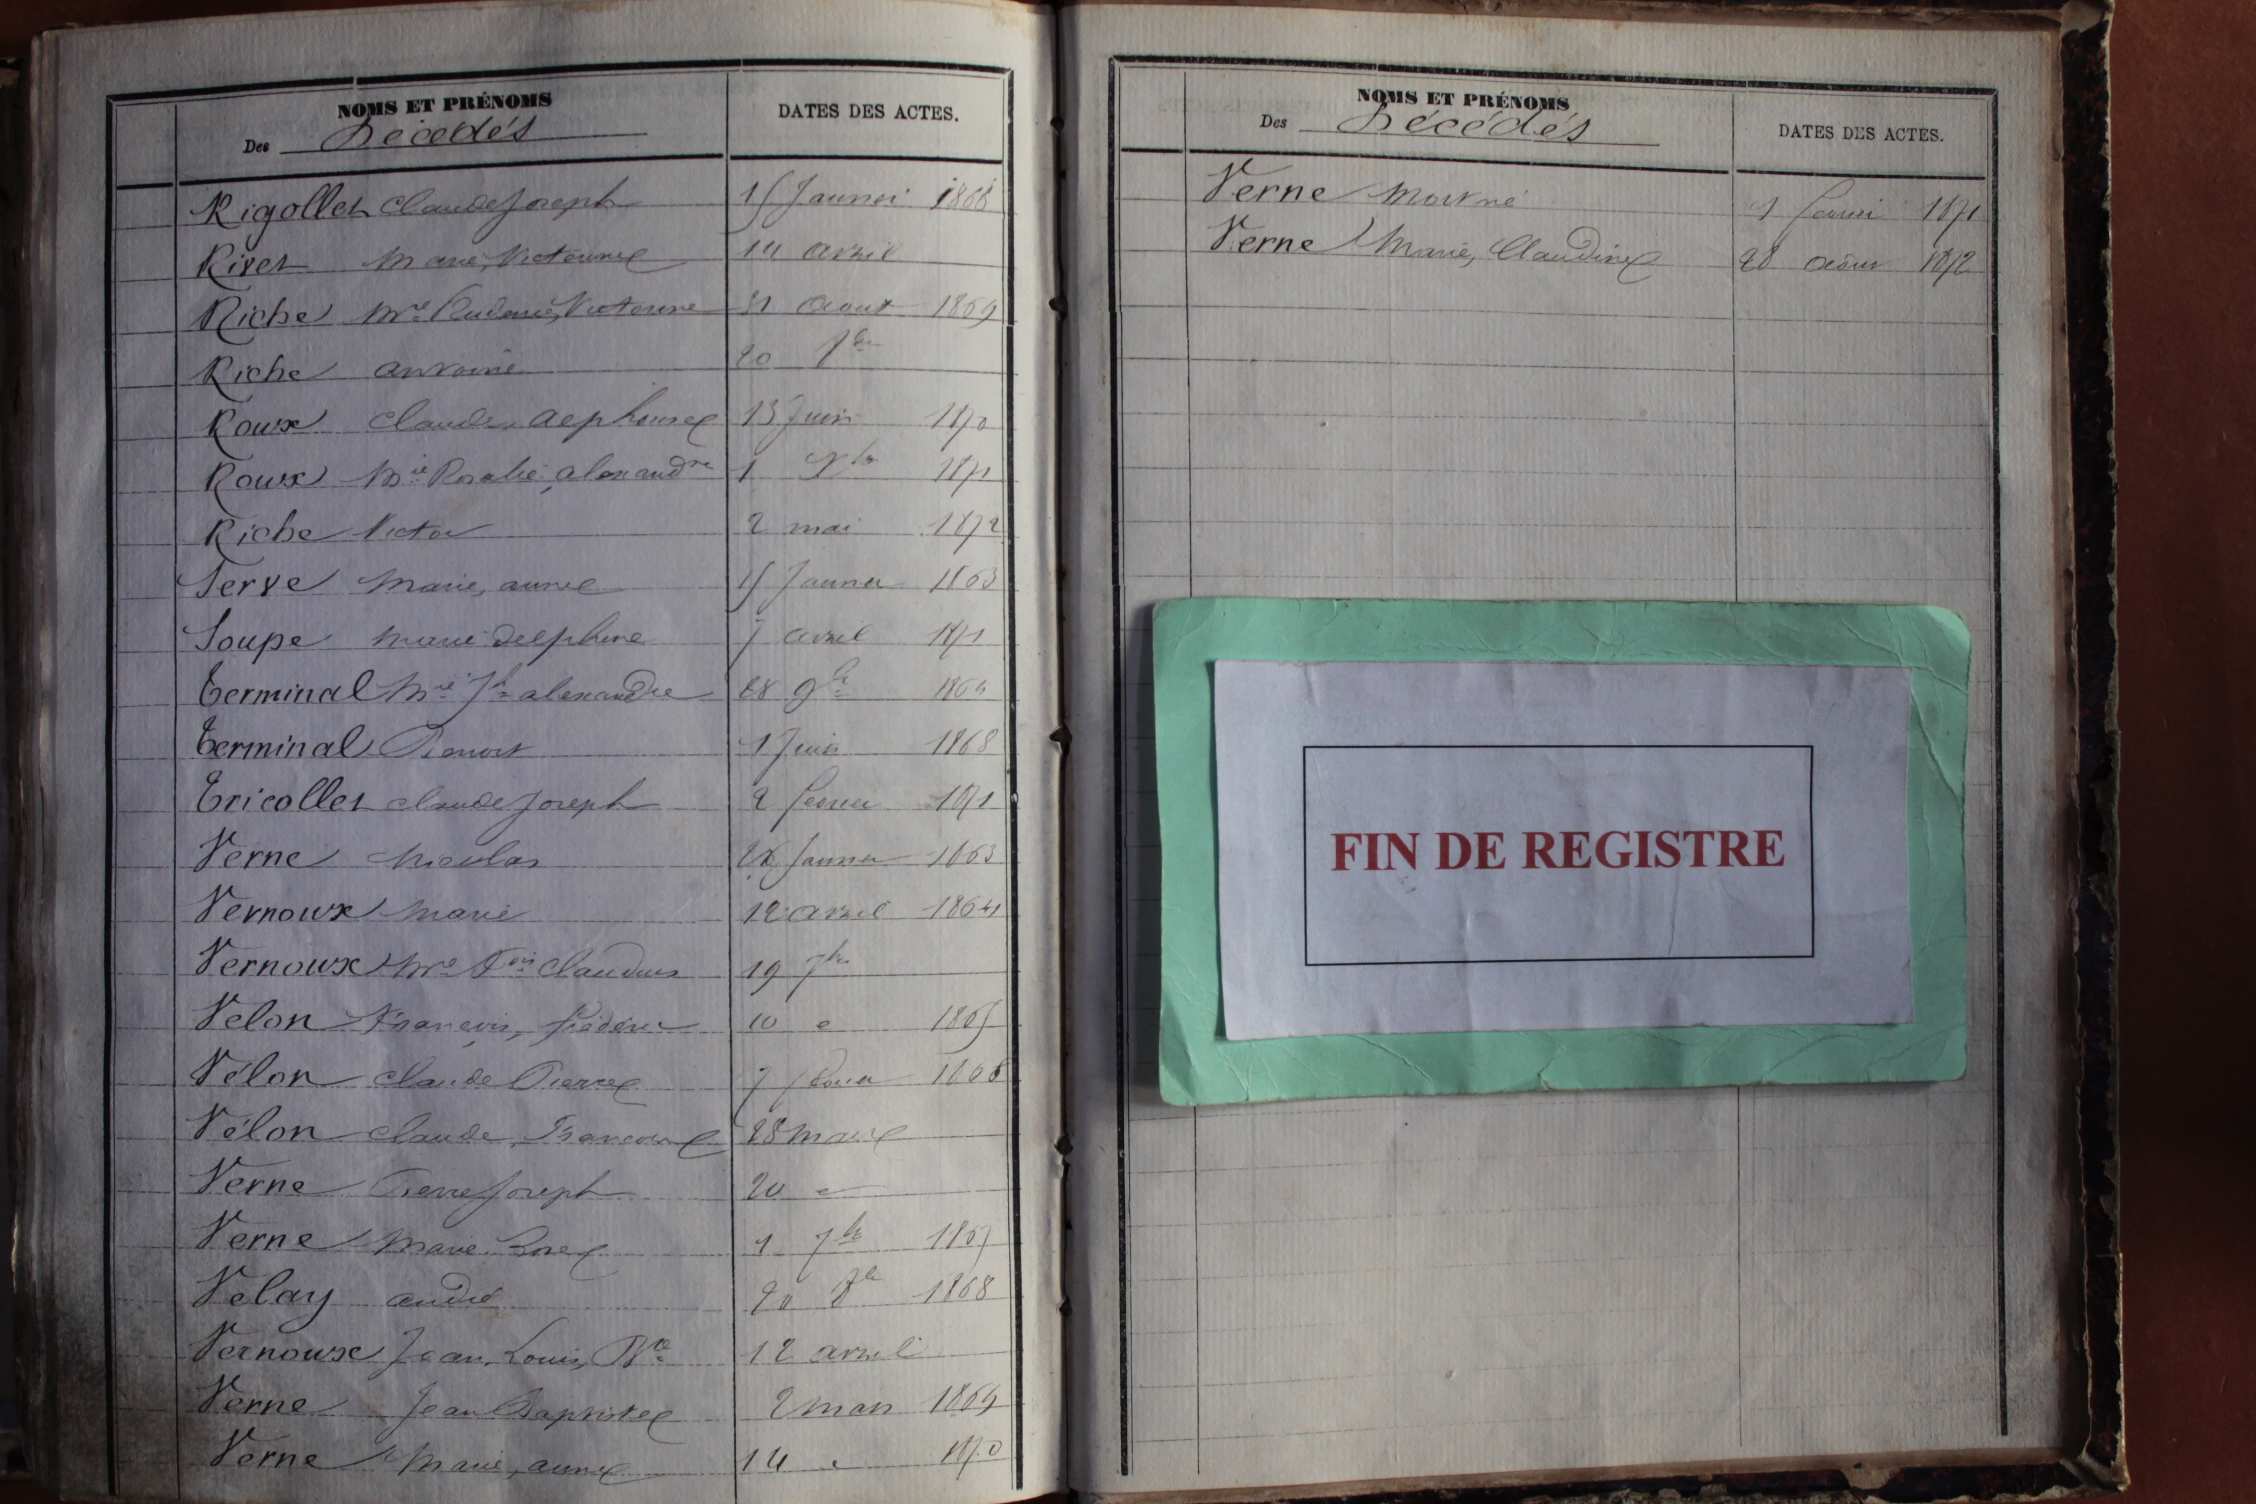 NOMS ET PRÉNOMS
Des Décédés
DATES DES ACTES.
Rigollet Claude Joseph 15 Janvier 1866
Rivet Marie, Victorine 14 avril
Riche Mie Victorine 31 aout 1869
Riche antoine 20 8bre
Roux Claude alphonse 13 Juin 1870
Roux Mie Rosalie, alexandre 1 Xbre 1871
Riche Victor 2 mai 1872
Serve Marie, anne 15 Janvier 1863
Soupe Marie delphine 7 avril 1871
Terminal Mie Jh alexandre 28 9bre 1864
Terminal Benoit 1 Juin 1868
Tricollet Claude Joseph 2 fevrier 1871
Verne Nicolas Janvier 1863
Vernoux Marie 12 avril 1864
Vernoux Mie Fois Claudius 19 7bre
Velon François, frédéric 10 1865
Vélon Claude Pierre 7 fevrier 1866
Vélon Claude, Francois 28 mars
Verne Pierre Joseph 20
Verne Marie Rose 1 7bre 1867
Velay andré 20 8bre 1868
Vernoux Jean, Louis, Bte 12 avril
Verne Jean Baptiste 2 mars 1869
Verne Marie, anne 14 1870
NOMS ET PRÉNOMS
Des Décédés
DATES DES ACTES.
Verne Mort né 1 fevrier 1871
Verne Marie, Claudine 28 aout 1872
FIN DE REGISTRE